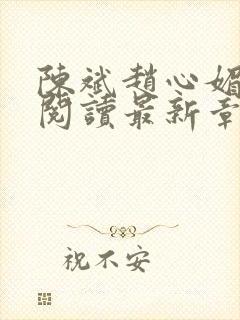 陳斌趙心媚
閱讀最新章
祝不安